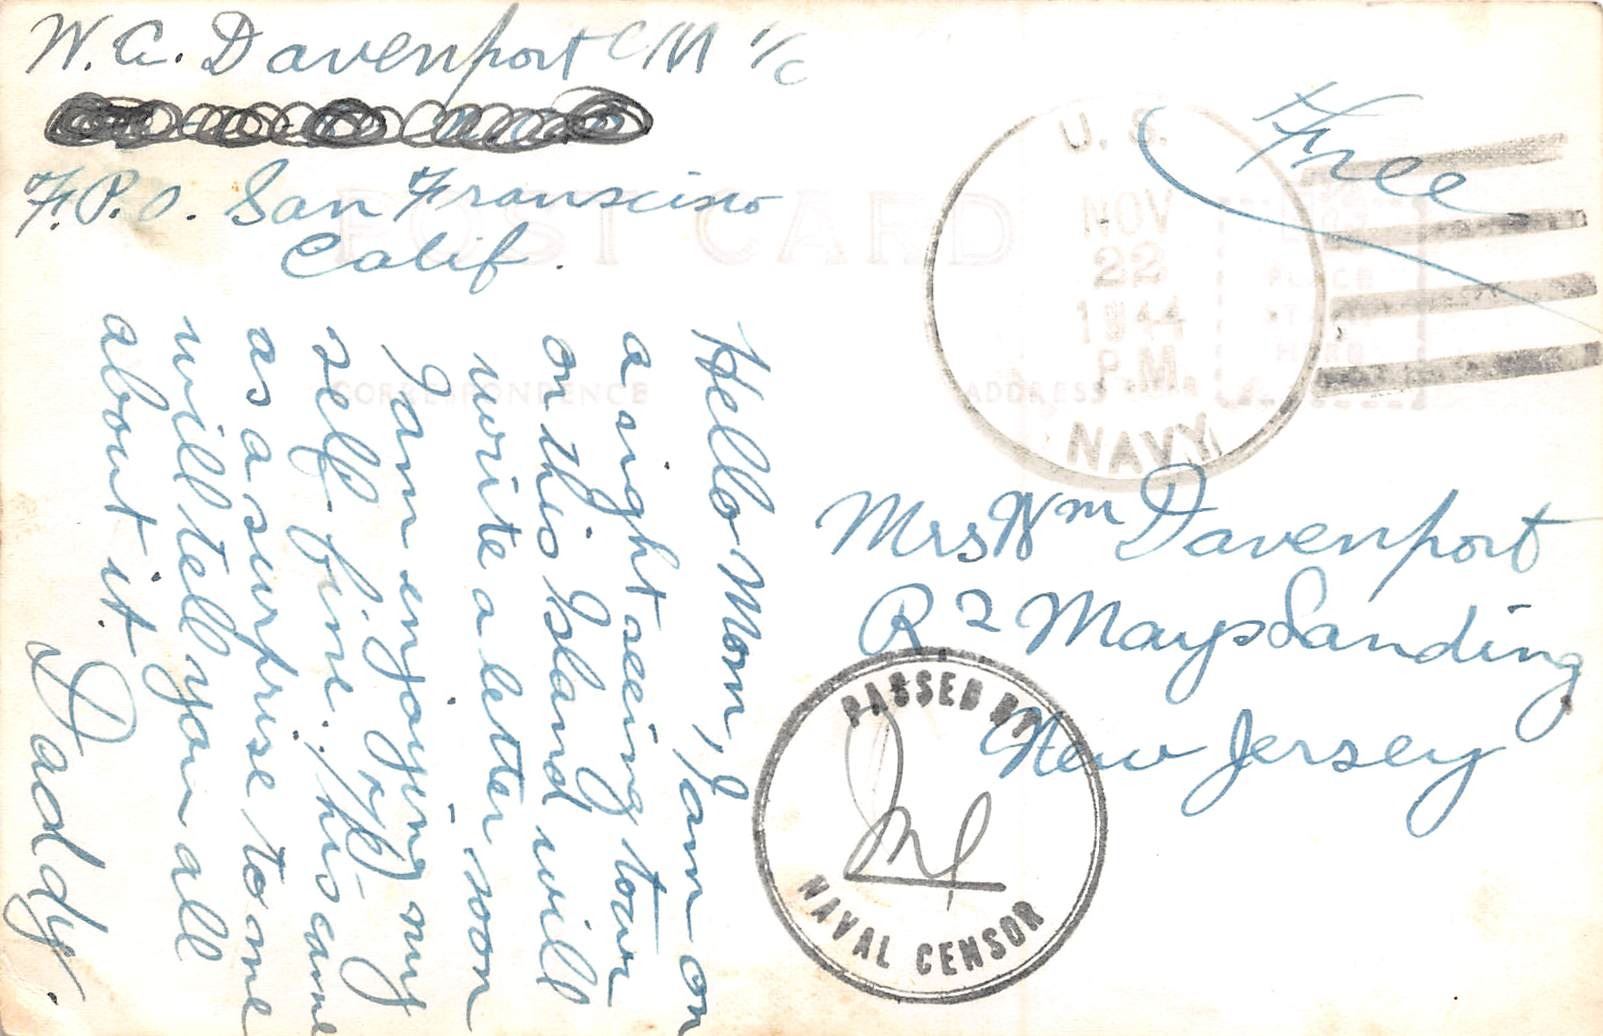 W. C. Davenport CM 1/c
F.P.O. San Franscisco
Calif.
Free
POST CARD
U. S.
NOV
22
1944
P.M.
NAVY
PLACE
HERE
CORRESPONDENCE
ADDRESS
Mrs Wm Davenport
R 2 Mays Landing
New Jersey
PASSED BY
NAVAL CENSOR
Hello Mom, I am on
a sight seeing tour
on this Island will
write a letter soon
I am enjoying my
self fine. This came
as a surprise to me
will tell you all
about it.
Daddy.